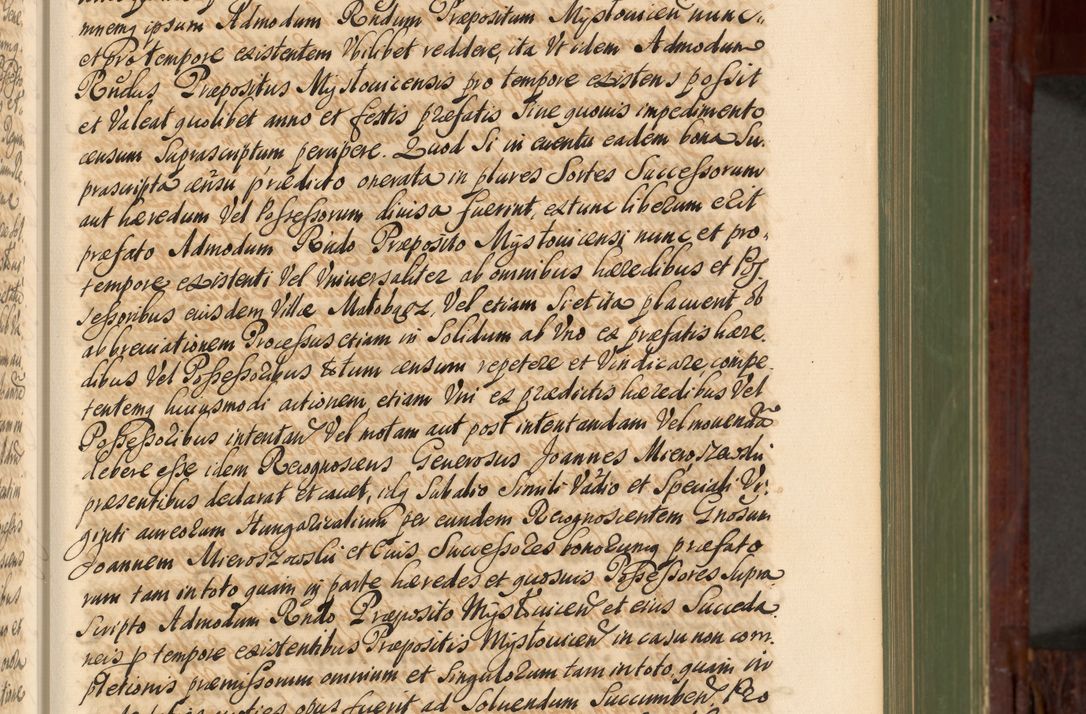 mnemq ipsum Admodum Rndum Præpositum Mystouicen nunc
et pro tempore existentem Vtilibet reddere, ita Vt idem Admodum
Rndus Præpositus Mystouicensis pro tempore existens possit
et Valeat quolibet anno et festis præfatis Sine quouis impedimento
censum Suprascriptum percipere. Quod Si in euentu eadem bona Su-
prascripta censu prædicto onerata in plures Sortes Successorum
aut hæredum Vel Possessorum diuisa fuerint, extunc liberum erit
præfato Admodum Rndo Præposito Mystouicensi nunc et pro
tempore existenti Vel Vniuersaliter ab omnibus hæredibus et Pos
sessoribus eiusdem Villæ Malobądz, Vel etiam Si et ita placuerit ob
abbreuiationem Processus etiam in Solidum ab Vno ex præfatis hære
dibus Vel Possessoribus totum censum repetere et Vindicare compe
tentemq huiusmodi actionem etiam Vni ex prædictis hæredibus Vel
Possessoribus intentan Vel motam aut post intentandam Vel mouenda
debere esse idem Recognoscens Generosus Joannes Mieroszewski
præsentibus declarat et cauet, idq Sub alio Simili Vadio et Speciali Vi-
ginti aureorum Hungaricalium per eundem Recognoscentem Gnosum
Joannem Mieroszowski et Eius Successores bonorumq præfato
rum tam in toto quam in parte hæredes et quosuis Possessores Supra
Scripto Admodum Rndo Præposito Mystouicen et eius Succeda
neis p tempore existentibus Præpositis Mystouicen in casu non com-
pletionis præmissorum omnium et Singulorum tam in toto, quam in
quoties opus fuerit ad Soluendum Succumben, Pro